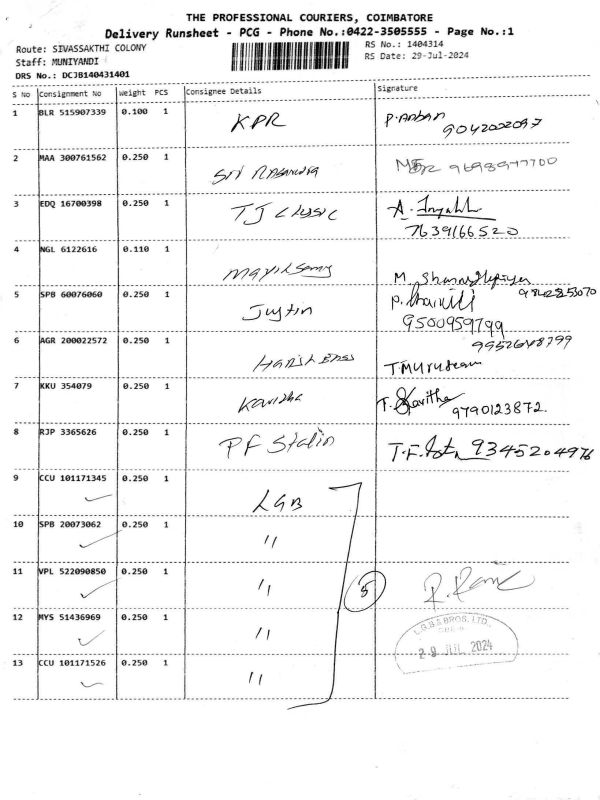 THE PROFESSIONAL COURIERS, COIMBATORE
Delivery Runsheet - PCG - Phone No.:0422-3505555 - Page No.:1
Route: SIVASSAKTHI COLONY
Staff: MUNIYANDI
DRS No.: DCJB140431401
RS No.: 1404314
RS Date: 29-Jul-2024
S No Consignment No Weight PCS Consignee Details Signature
1 BLR 515907339 0.100 1 KPR P. Anban
9042002097
2 MAA 300761562 0.250 1 Sri
3 EDQ 16700398 0.250 1 TJ Clusic A.
7639166520
4 NGL 6122616 0.110 1 mayilsamy M.
9842253070
5 SPB 60076060 0.250 1 Justin P.
9500959799
6 AGR 200022572 0.250 1 Harish 9952648799
T Murugesan
7 KKU 354079 0.250 1 Kavitha T. Kavitha
9790123872.
8 RJP 3365626 0.250 1 PF Stalin T.F. 9345204976
9 CCU 101171345 0.250 1 LGB
10 SPB 20073062 0.250 1 "
11 VPL 522090850 0.250 1 " 5
12 MYS 51436969 0.250 1 "
L.G.B & BROS. LTD.,
29 JUL 2024
13 CCU 101171526 0.250 1 "